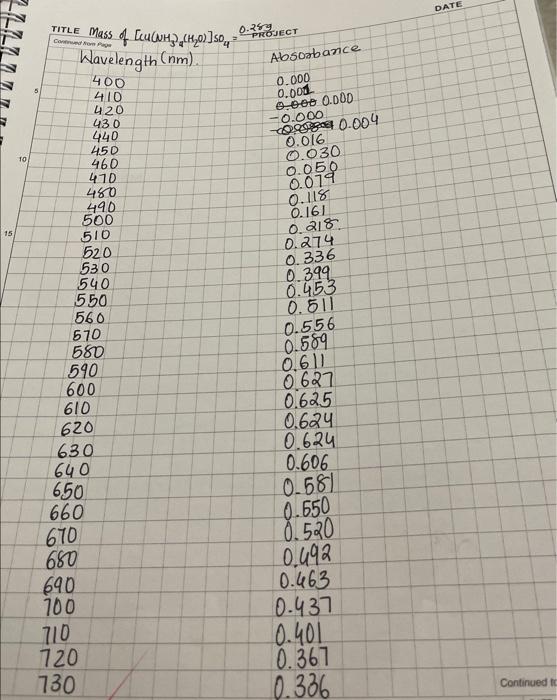 DATE
TITLE Mass of [Cu(NH3)4(H2O)]SO4 = 0.25g
PROJECT
Continued from Page
Wavelength (nm). Absorbance
400 0.000
5 410 0.001
420 0.000 0.000
430 -0.000
440 0.004
450 0.016
10 460 0.030
470 0.050
480 0.079
490 0.118
500 0.161
15 510 0.218
520 0.274
530 0.336
540 0.399
550 0.453
560 0.511
570 0.556
580 0.589
590 0.611
600 0.627
610 0.625
620 0.624
630 0.624
640 0.606
650 0.581
660 0.550
670 0.520
680 0.492
690 0.463
700 0.437
710 0.401
720 0.367
730 0.336
Continued